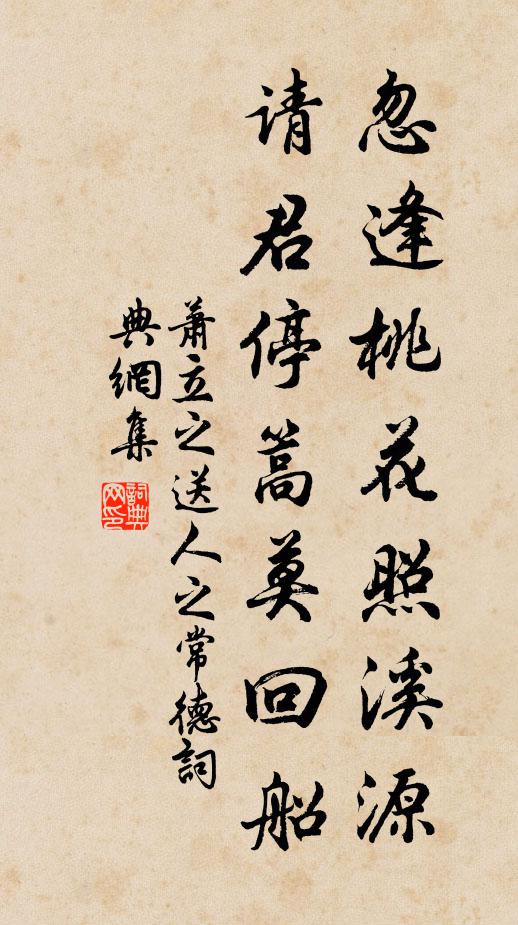 忽逢桃花照溪源
请君停篙莫回船
萧立之送人之常德詞
典網集
詞典
网印